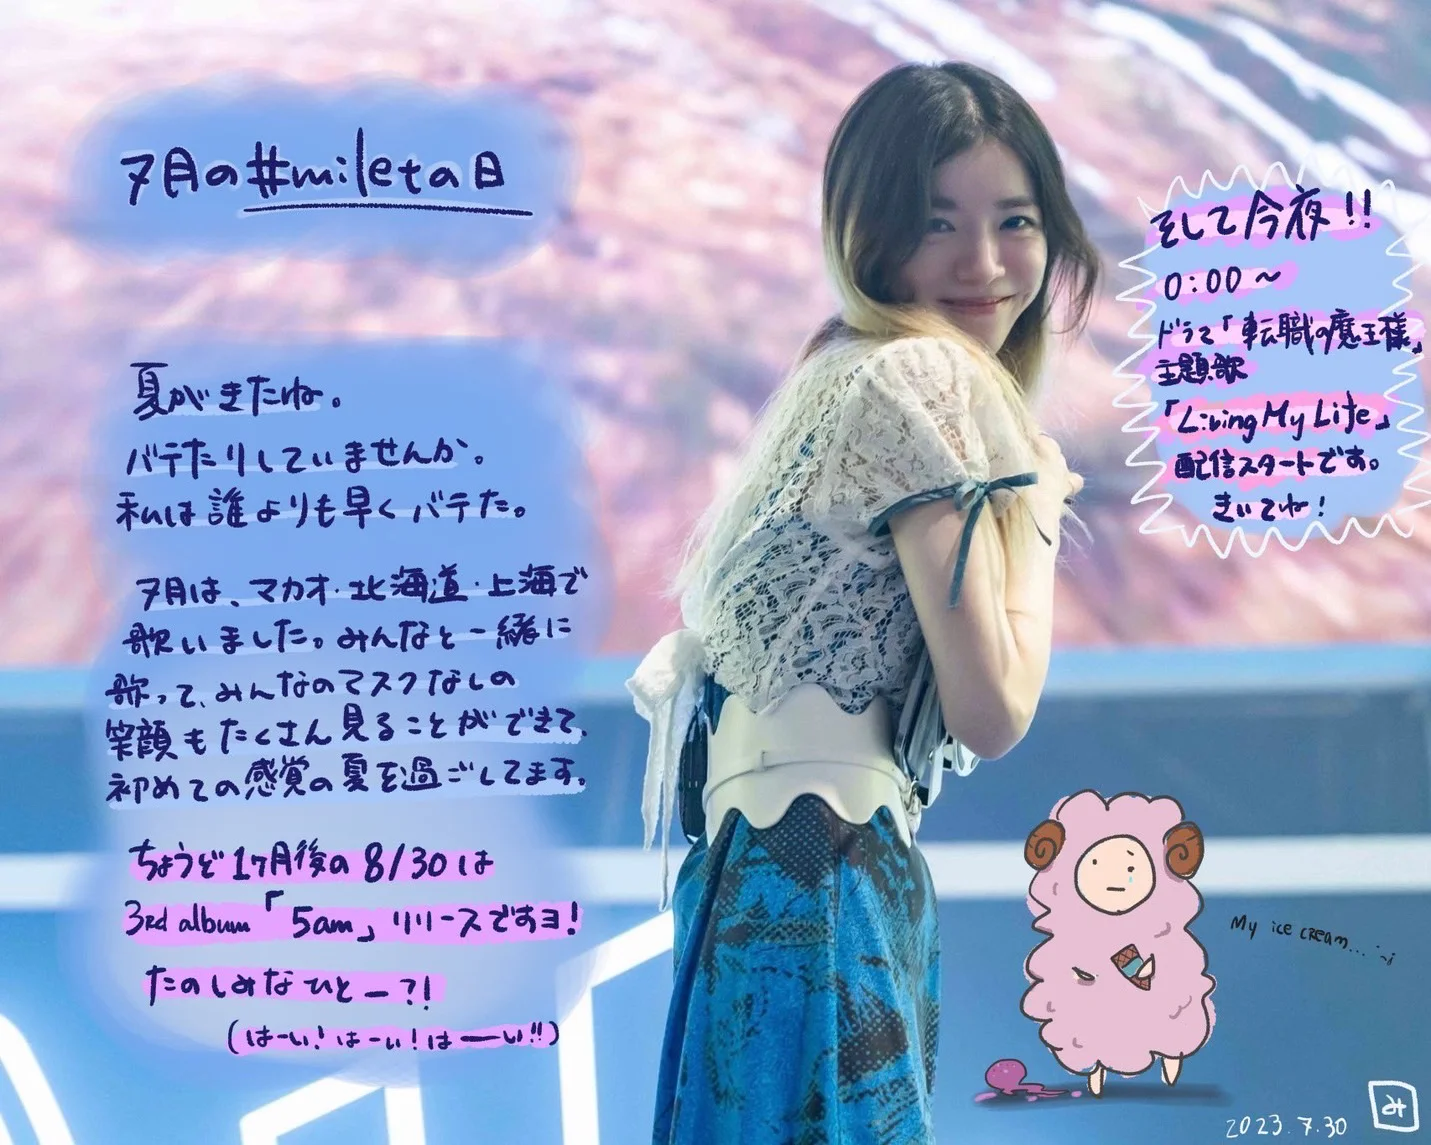 7月の#mileta日
夏がきたね。
バテたりしていませんか。
私は誰よりも早くバテた。
7月は、マカオ・北海道・上海で
歌いました。みんなと一緒に
歌って、みんなのマスクなしの
笑顔もたくさん見ることができて、
初めての感覚の夏を過ごしてます。
ちょうど1ヶ月後の8/30は
3rd album「5am」リリースですヨ!
たのしみなひとー?!
(はーい!はーい!はーーい!!)
そして今夜!!
0:00〜
ドラマ「転職の魔王様」
主題歌
「Living My Life」
配信スタートです。
きいてね!
My ice cream... ;-;
2023.7.30
み